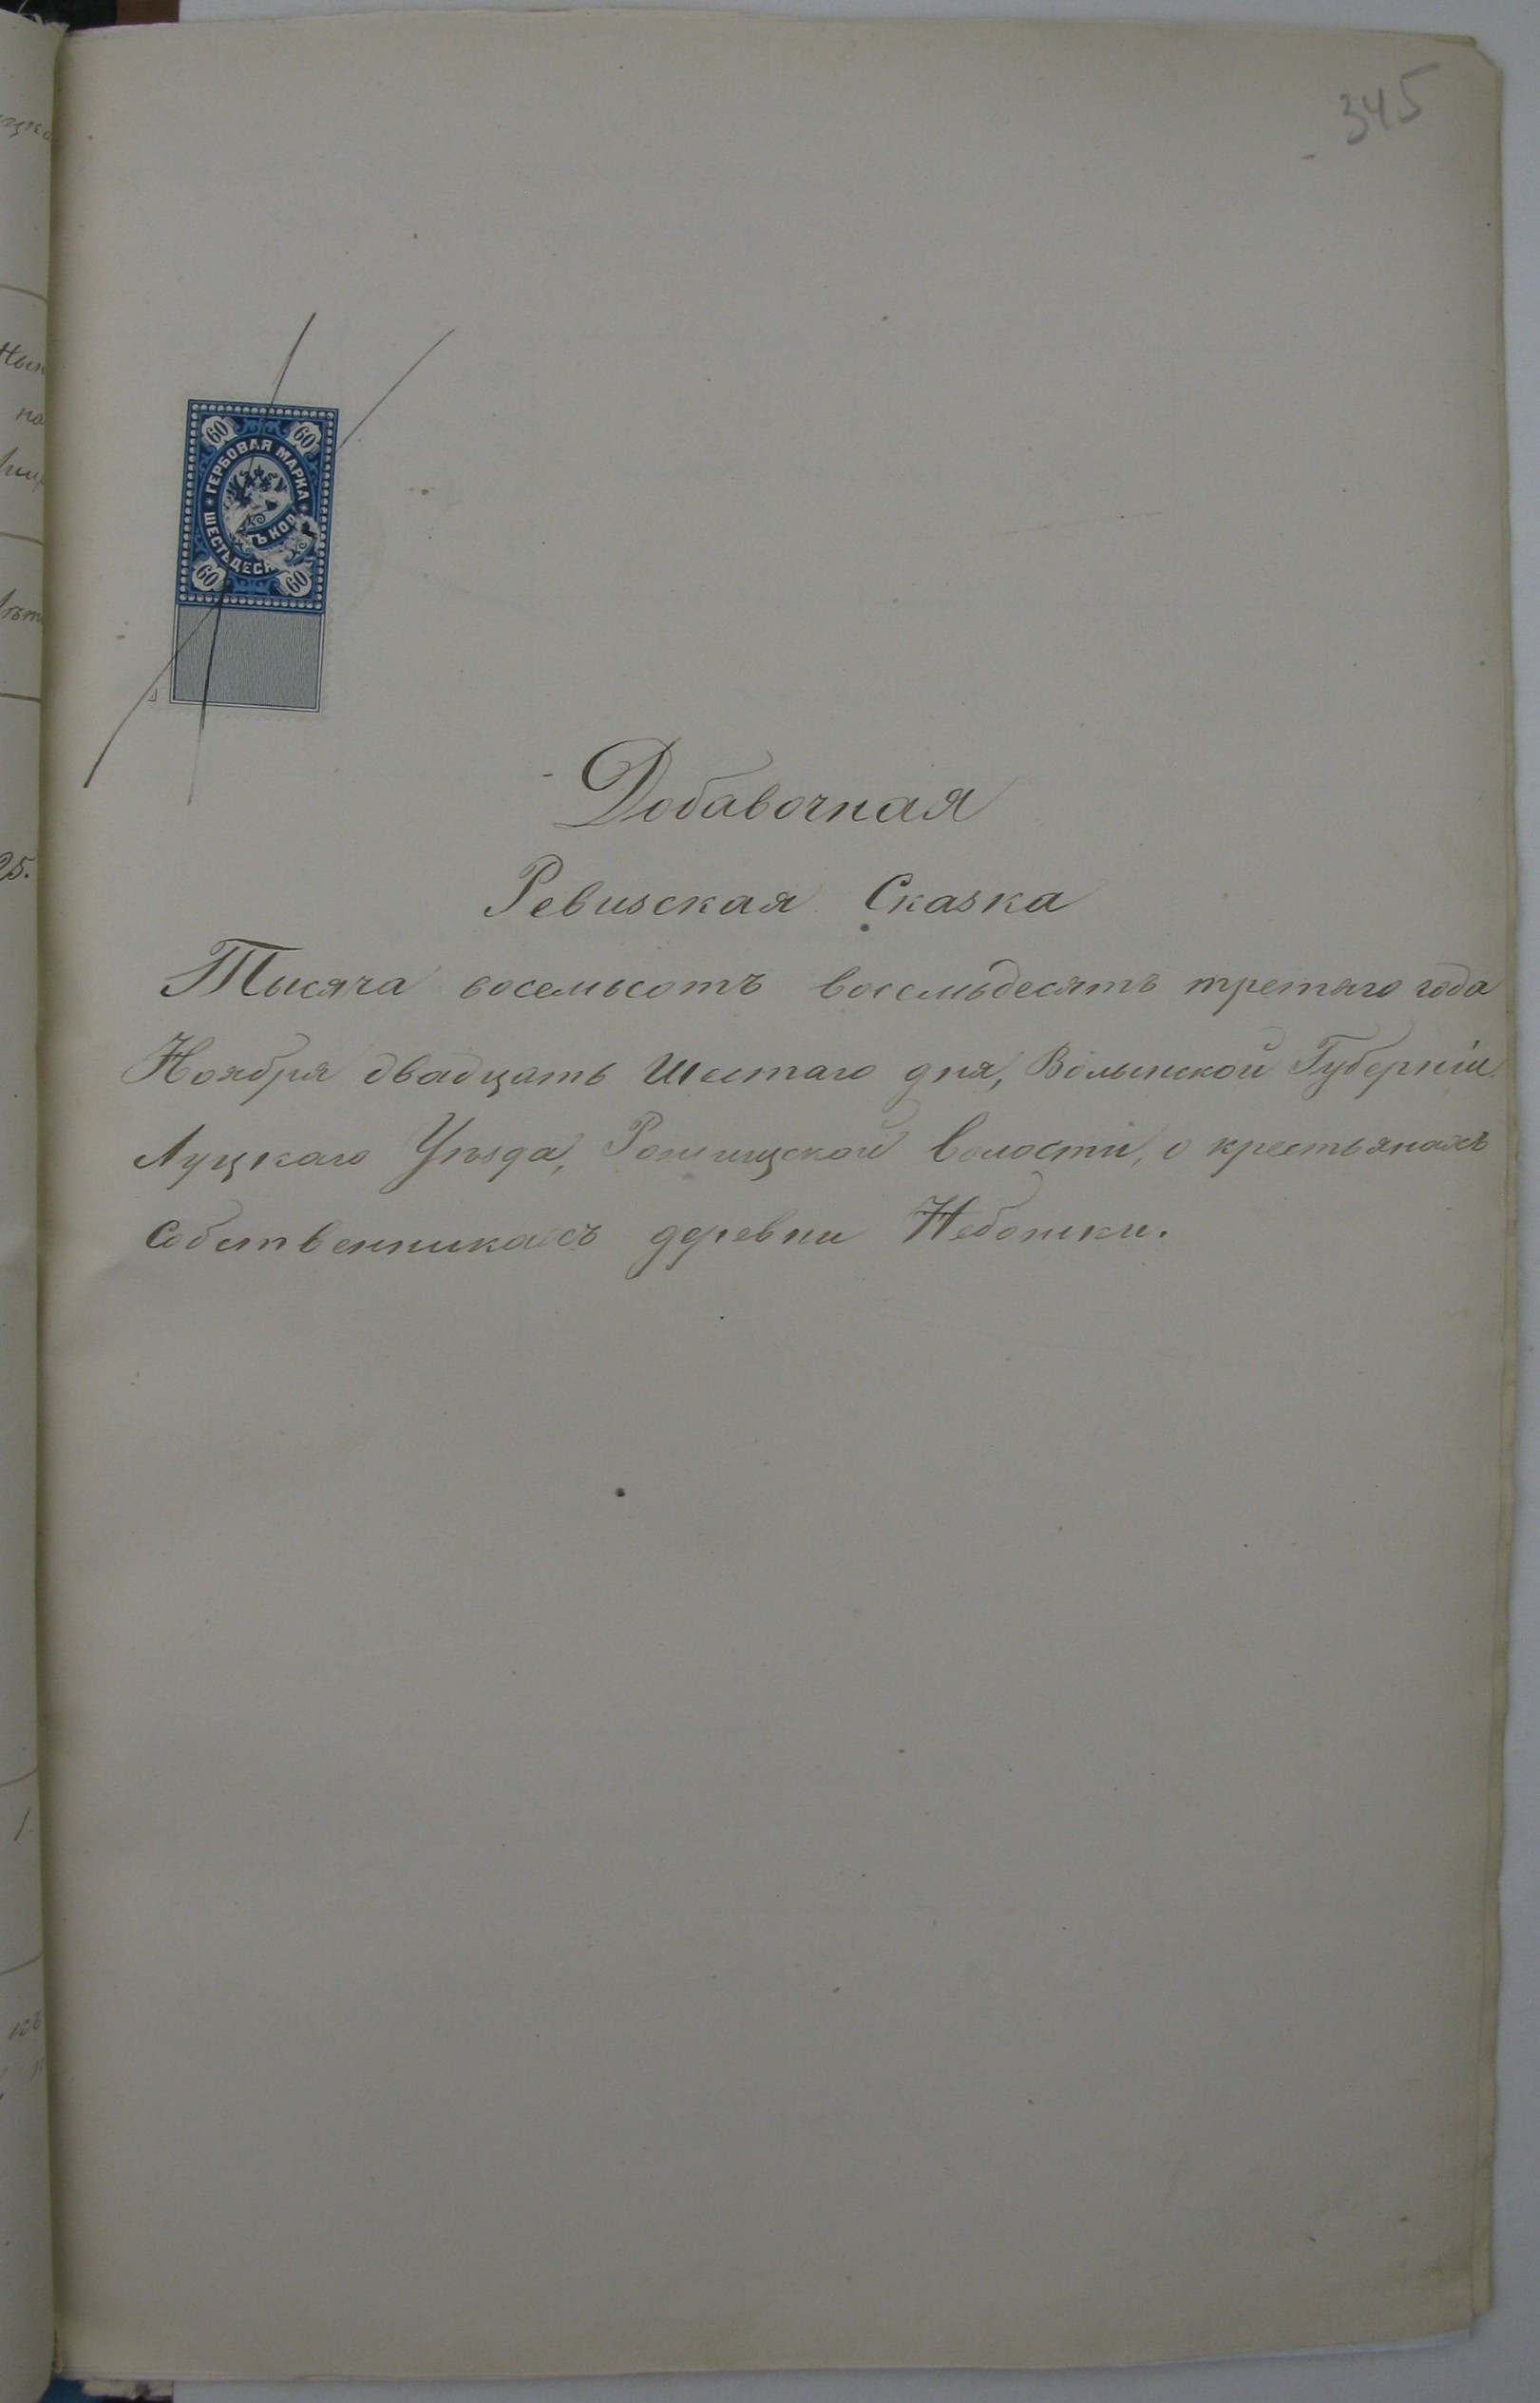 345
60 60
ГЕРБОВАЯ МАРКА
ШЕСТЬДЕСЯ ТЪ КОП
60 60
Добавочная
Ревизская Сказка
Тысяча восемьсотъ восемьдесятъ третяго года
Ноября двадцать Шестаго дня, Волынской Губерніи
Луцкаго Уѣзда, Рожищской волости, о крестьянахъ
собственникахъ деревни Небожки.
25.